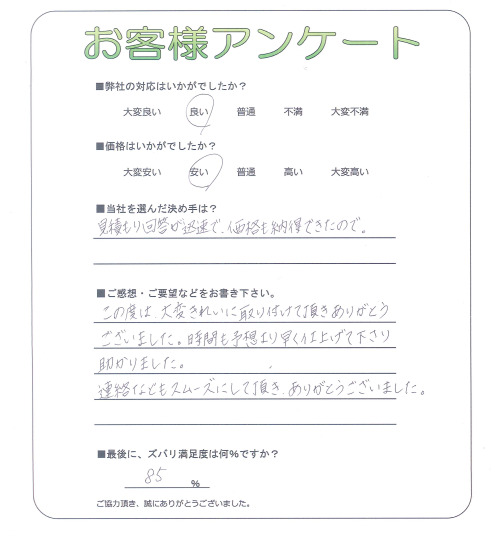 お客様アンケート
■弊社の対応はいかがでしたか？
大変良い 良い 普通 不満 大変不満
■価格はいかがでしたか？
大変安い 安い 普通 高い 大変高い
■当社を選んだ決め手は？
見積もり回答が迅速で、価格も納得できたので。
■ご感想・ご要望などをお書き下さい。
この度は、大変きれいに取り付けて頂きありがとう
ございました。時間も予想より早く仕上げて下さり
助かりました。
連絡などもスムーズにして頂き、ありがとうございました。
■最後に、ズバリ満足度は何％ですか？
85 ％
ご協力頂き、誠にありがとうございました。